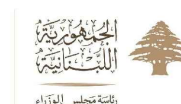 الجمهوريّة
اللّبنانيّة
رئاسة مجلس الوزراء